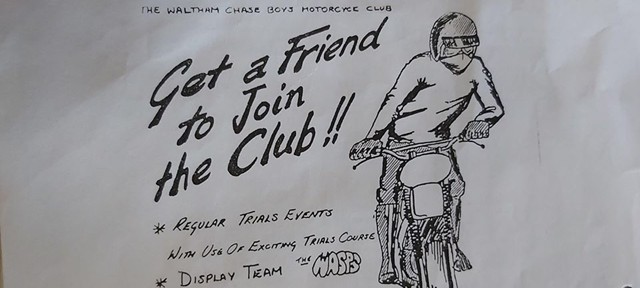 THE WALTHAM CHASE BOYS MOTORCYCE CLUB
Get a Friend
to Join
the Club!!
* REGULAR TRIALS EVENTS
WITH USE OF EXCITING TRIALS COURSE
* DISPLAY TEAM THE WASPS